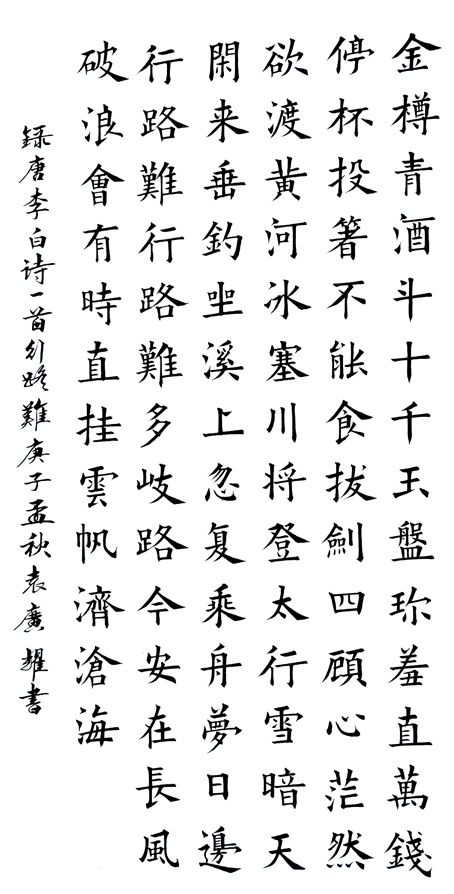 金樽青酒斗十千玉盤珎羞直萬錢
停杯投箸不能食拔劍四顧心茫然
欲渡黄河冰塞川将登太行雪暗天
閑来垂釣坐溪上忽复乘舟夢日邊
行路難行路難多岐路今安在長風
破浪會有時直挂雲帆濟滄海
録唐李白诗一首行路難庚子孟秋袁廣耀書